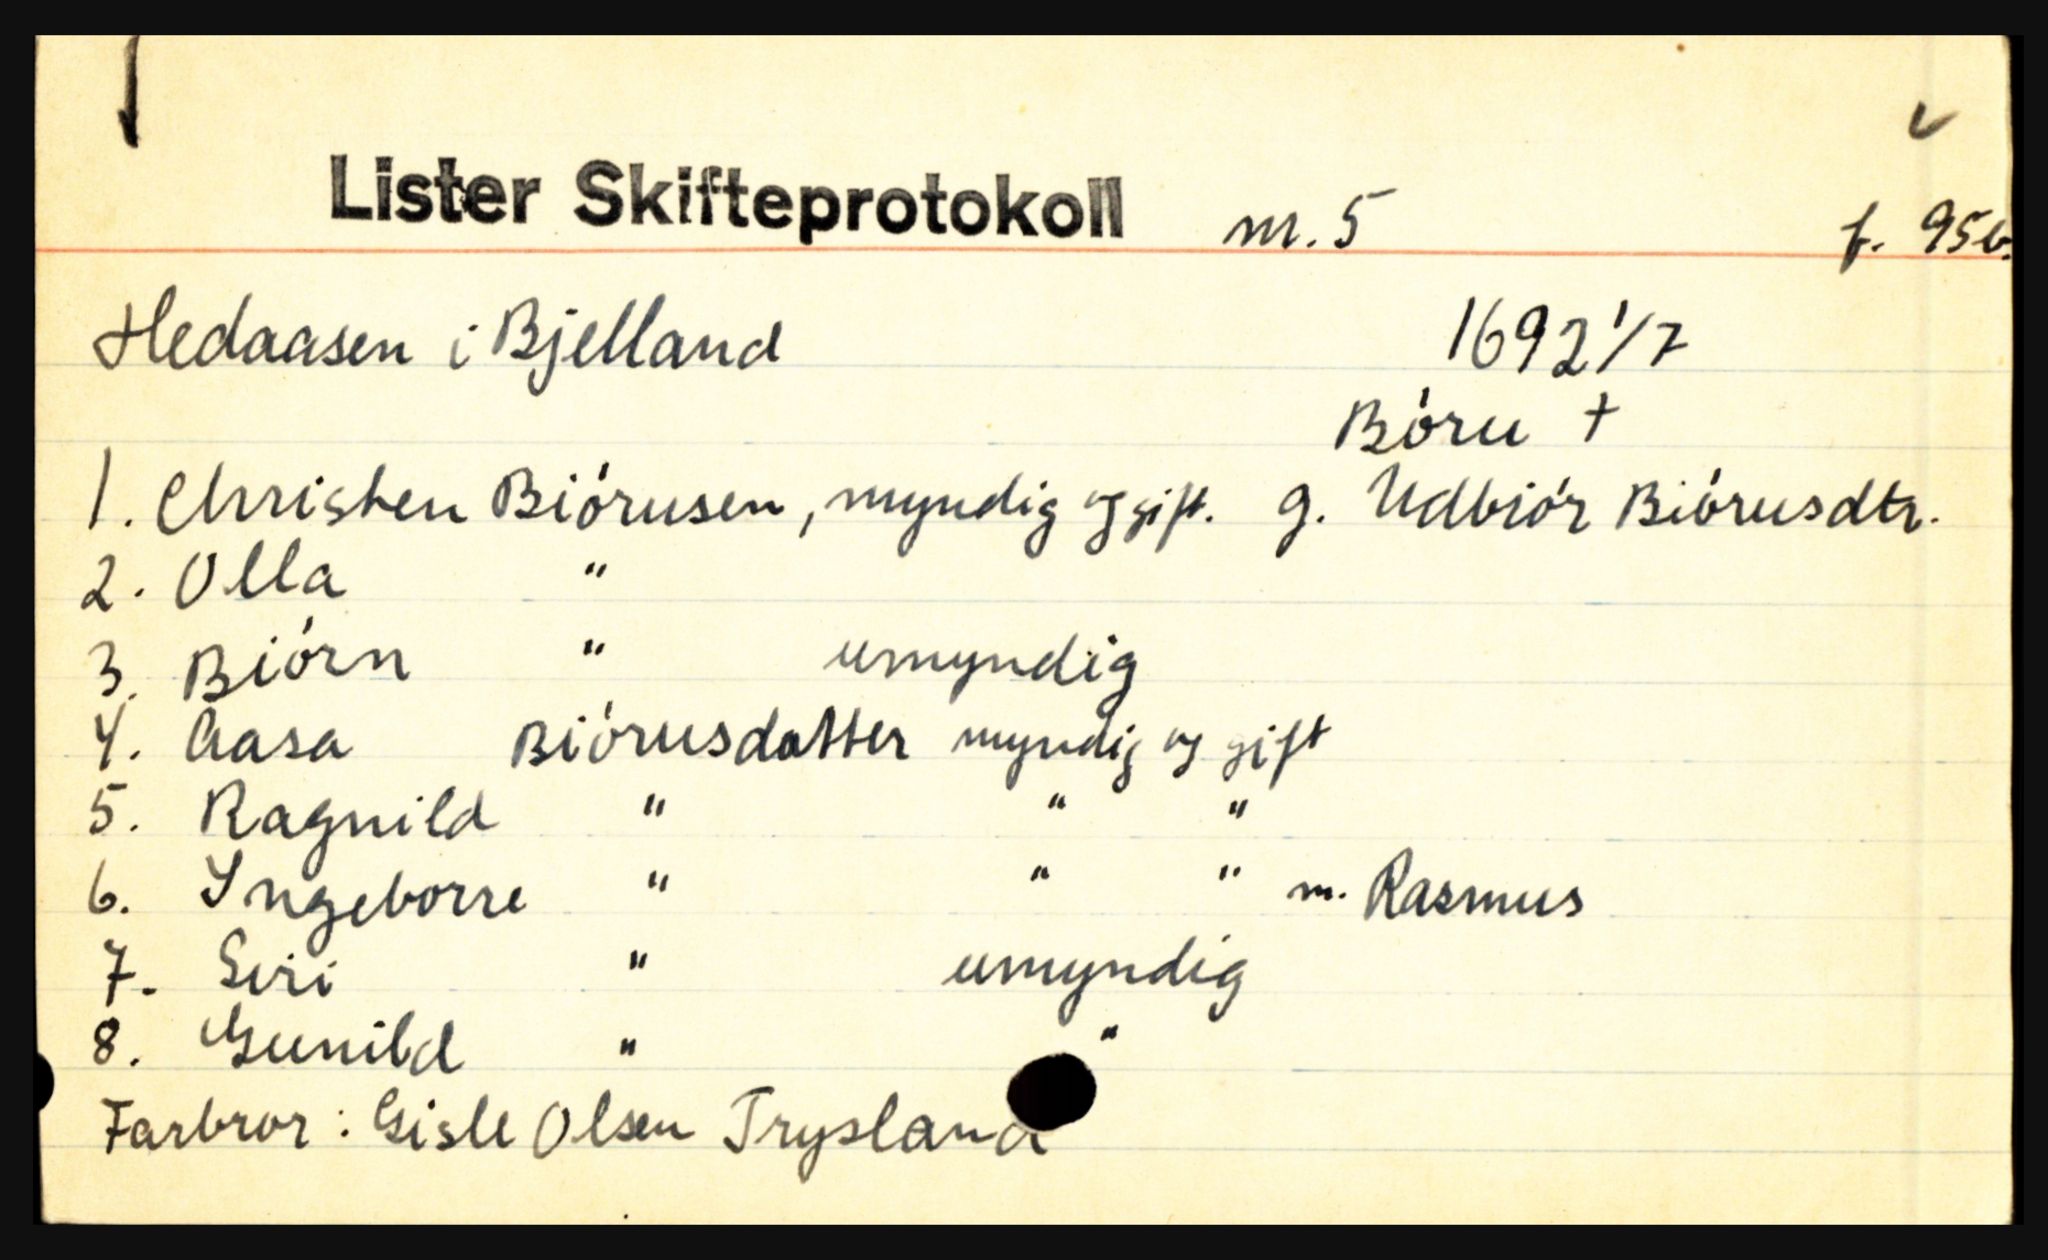 Lister Skifteprotokoll m. 5 f. 95b.
Hedaasen i Bjelland 1692 1/7
Bóru +
1. Christen Biórusen, myndig og gift. g. Udbiór Biórusdtr.
2. Olla "
3. Biórn " umyndig
4. Aasa Biórusdatter myndig og gift
5. Ragnild " " "
6. Ingeborre " " " m. Rasmus
7. Siri " umyndig
8. Gunild " "
Farbror : Gisle Olsen Trysland